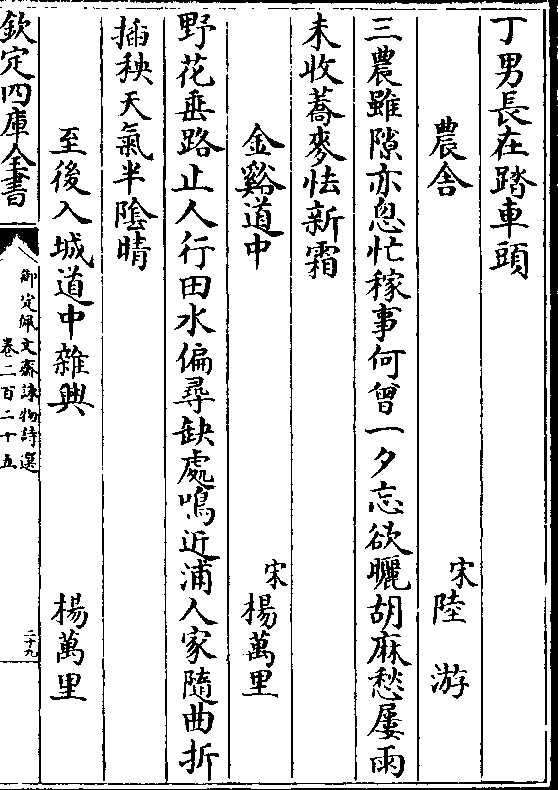 丁男長在踏車頭
農舎 宋陸游
三農雖隙亦怱忙稼事何曾一夕忘欲曬胡麻愁屢雨
未收蕎麥怯新霜
金谿道中 宋楊萬里
野花垂路止人行田水偏尋缺處鳴近浦人家隨曲折
插秧天氣半陰晴
至後入城道中雜興 楊萬里
欽定四庫全書
御定佩文齋詠物詩選
卷二百二十五
二十九